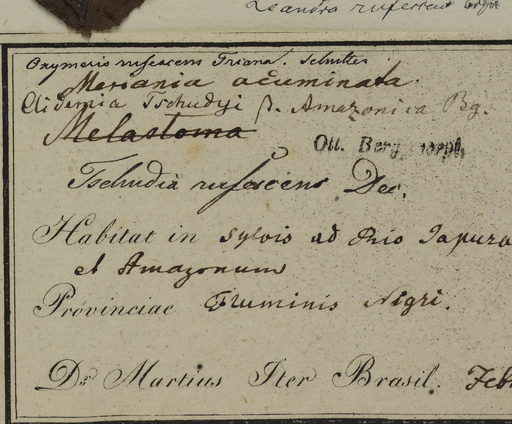 Leandra rufescens Cogn
Oxymeris rufescens Triana.
Meriania acuminata.
Clidemia Tschudyi β. Amazonica Bg.
Melastoma
Ott. Berg scrips.
Tschudia rufescens Dec.
Habitat in sylvis ad Rio Iapura
et Amazonum
Provinciae Fluminis Nigri.
Dr Martius Iter Brasil. Feb